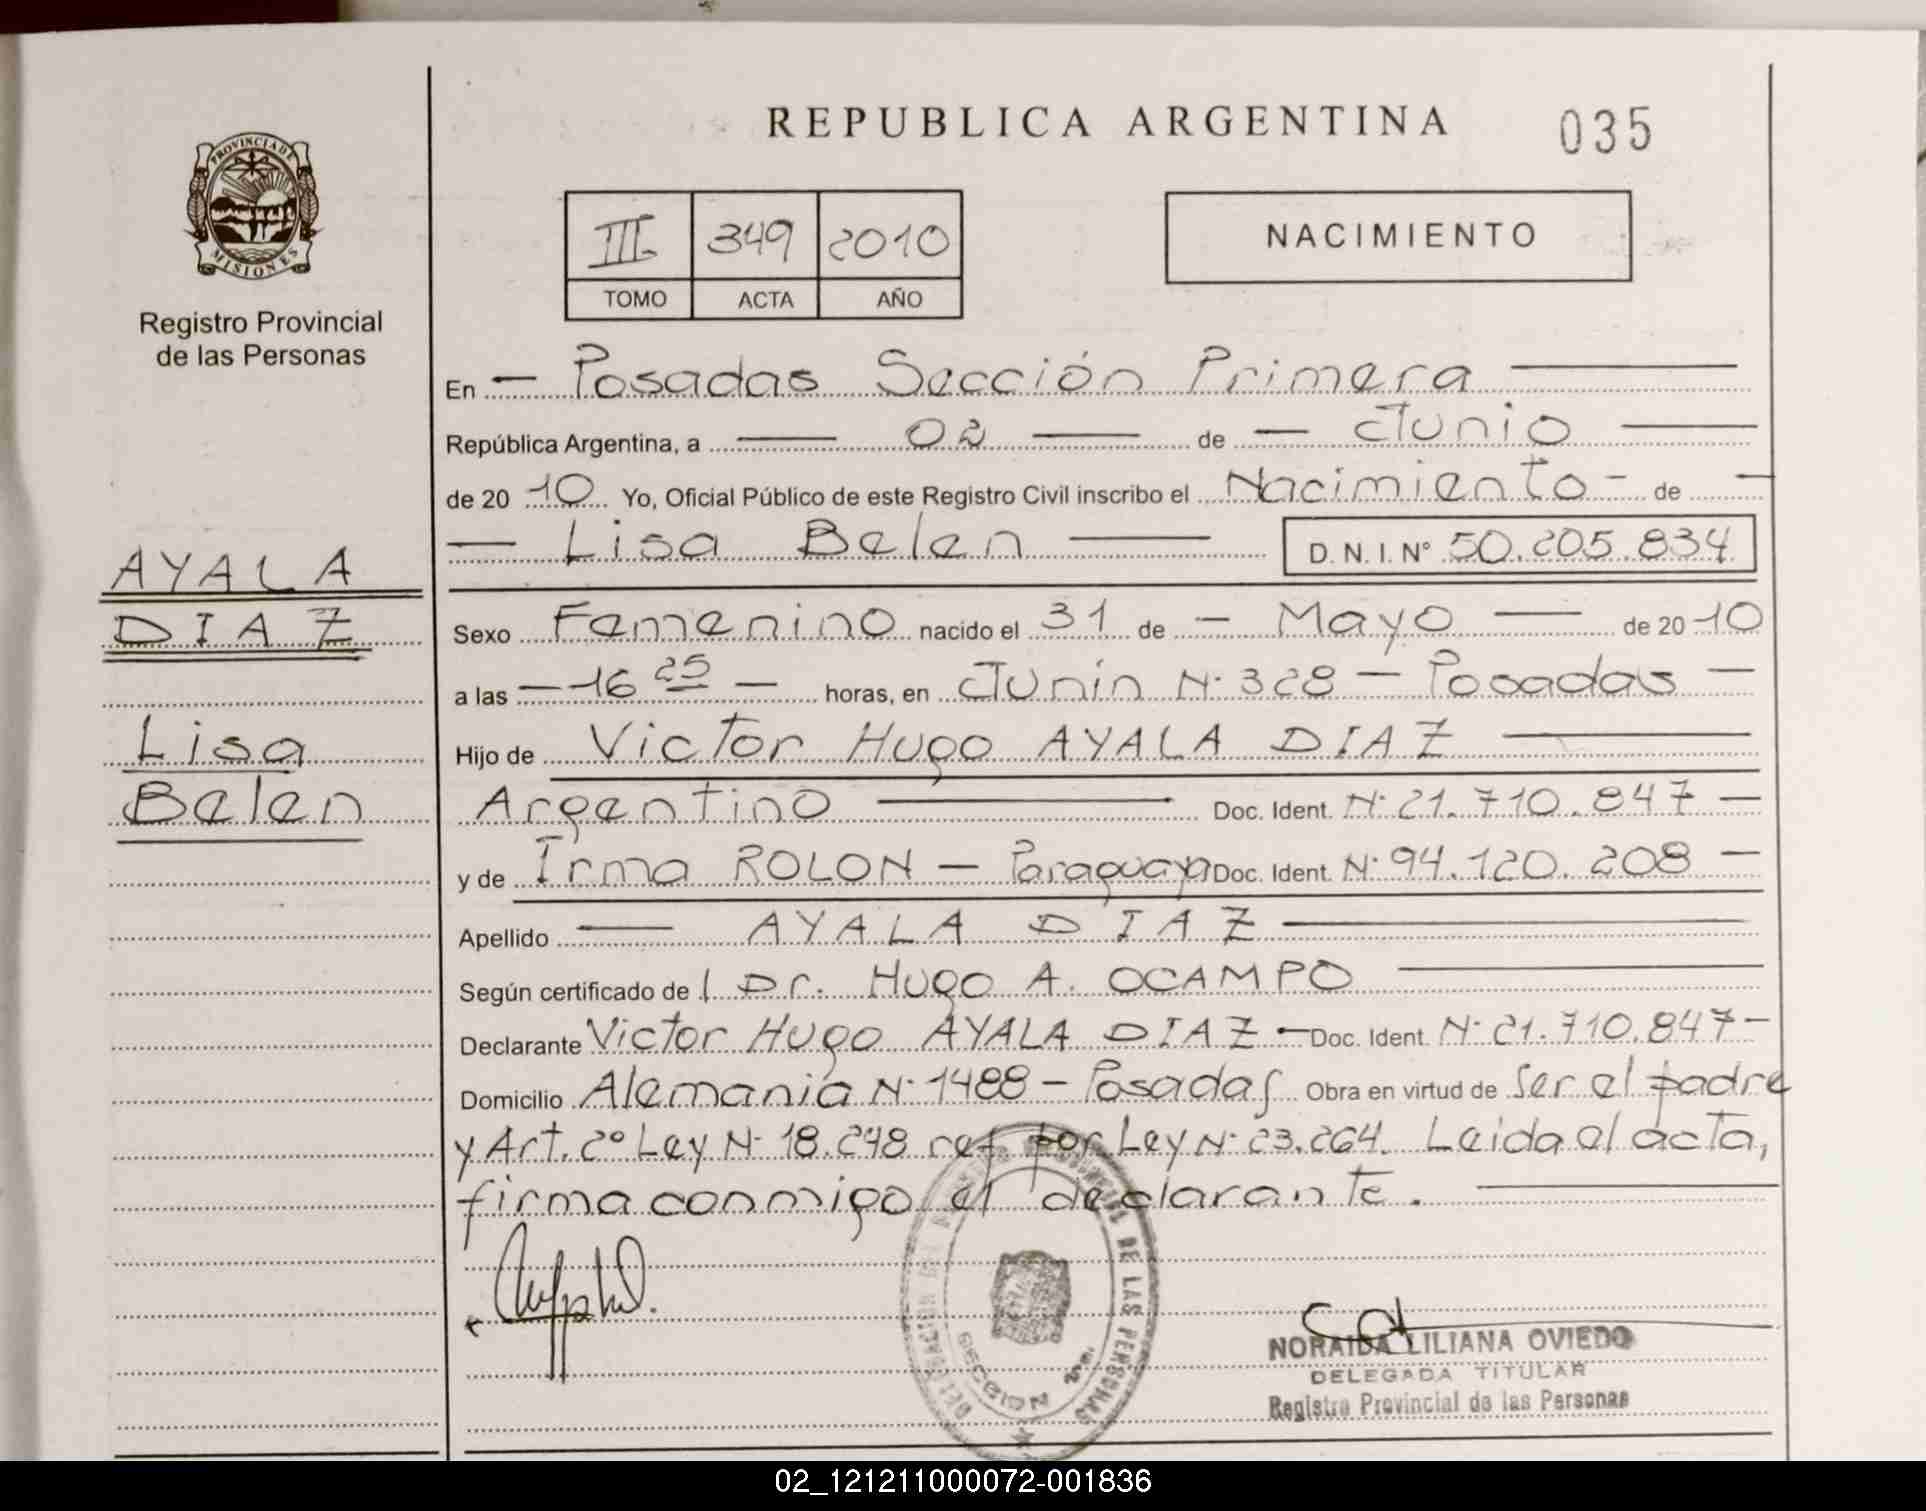 REPUBLICA ARGENTINA
035
PROVINCIA DE
MISIONES
Registro Provincial
de las Personas
III 349 2010
TOMO ACTA AÑO
NACIMIENTO
En — Posadas Sección Primera —
República Argentina, a — 02 — de — Junio —
de 20 10 Yo, Oficial Público de este Registro Civil inscribo el Nacimiento - de —
— Lisa Belen — D. N. I. N° 50.205.834
AYALA
DIAZ
Lisa
Belen
Sexo Femenino nacido el 31 de — Mayo — de 20 10
a las — 16 25 — horas, en Junín N° 328 — Posadas —
Hijo de Victor Hugo AYALA DIAZ —
Argentino — Doc. Ident. N° 21.710.847 —
y de Irma ROLON — Paraguaya Doc. Ident. N° 94.120.208 —
Apellido — AYALA DIAZ —
Según certificado de l Dr. Hugo A. OCAMPO —
Declarante Victor Hugo AYALA DIAZ — Doc. Ident. N° 21.710.847 —
Domicilio Alemania N° 1488 — Posadas Obra en virtud de Ser el padre
y Art. 2° Ley N° 18.248 ref por Ley N° 23.264. Leida el acta,
firma conmigo el declarante. —
DE LAS PERSONAS
SECCION
NORAIDA LILIANA OVIEDO
DELEGADA TITULAR
Registro Provincial de las Personas
02_121211000072-001836